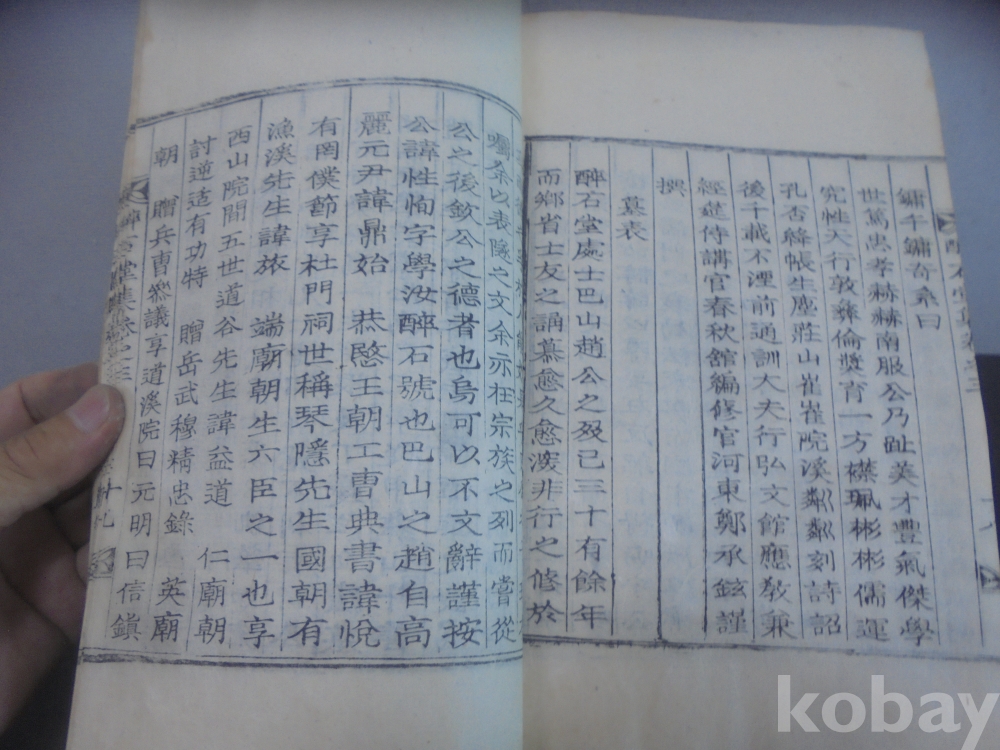 鏞千鏞奇系曰
世篤忠孝赫赫南服公乃趾美才豐氣傑學
究性天行敦彝倫獎育一方襟珮彬彬儒運
孔否絳帳生塵莊山崔崔院溪粼粼刻詩詔
後千載不湮前通訓大夫行弘文館應敎兼
經筵侍講官春秋館編修官河東鄭承鉉謹
撰
墓表
醉石堂處士巴山趙公之歿已三十有餘年
而鄕省士友之誦慕愈久愈深非行之修於
囑余以表隧之文余亦在宗族之列而嘗從
公之後欽公之德者也烏可以不文辭謹按
公諱性恂字學汝醉石號也巴山之趙自高
麗元尹諱鼎始 恭愍王朝工曺典書諱悅
有罔僕節享杜門祠世稱琴隱先生國朝有
漁溪先生諱旅 端廟朝生六臣之一也享
西山院間五世道谷先生諱益道 仁廟朝
討逆适有功特 贈岳武穆精忠錄 英廟
朝 贈兵曺參議享道溪院曰元明曰信鎭
醉石堂集卷之三
十九
kobay